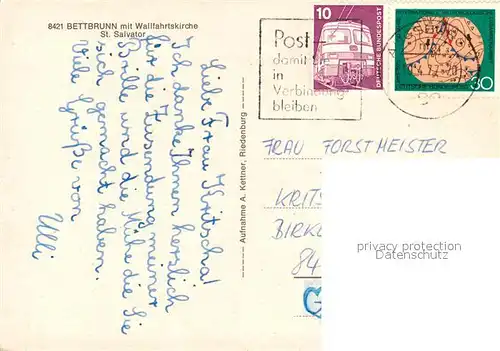 8421 BETTBRUNN mit Wallfahrtskirche
St. Salvator
Liebe Frau Kritscha!
Ich danke Ihnen herzlich
für die Zusendung meiner
Brille und die Mühe die Sie
sich gemacht haben.
Viele Grüße von
Ulli
Aufnahme A. Kettner, Riedenburg
Post
damit
in
Verbindung
bleiben
10
DEUTSCHE BUNDESPOST
30
FRAU FORSTMEISTER
KRITS
BIRK
84
privacy protection
Datenschutz